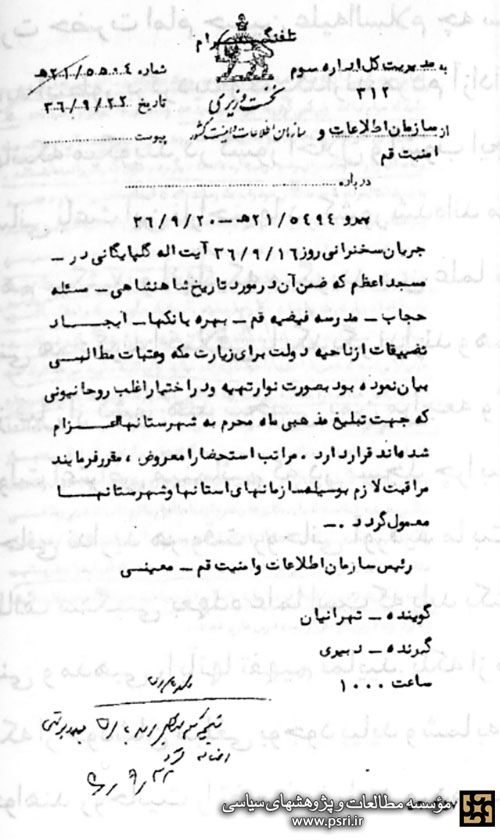 تلفنگرام
به مدیریت کل اداره سوم
۳۱۲
شماره ۲۱/۵۵۰۴ ه‍
تاریخ ۳۶/۹/۲۲
نخست وزیری
از سازمان اطلاعات و
امنیت قم
سازمان اطلاعات و امنیت کشور
پیوست
درباره
پیرو ۲۱/۵۴۹۴ ه‍ – ۳۶/۹/۲۰
جریان سخنرانی روز ۳۶/۹/۱۶ آیت اله گلپایگانی در –
مسجد اعظم که ضمن آن در مورد تاریخ شاهنشاهی – مسئله
حجاب – مدرسه فیضیه قم – بهره بانکها – ایجاد
تضییقات از ناحیه دولت برای زیارت مکه و عتبات مطالبی
بیان نموده بود بصورت نوار تهیه و در اختیار اغلب روحانیونی
که جهت تبلیغ مذهبی ماه محرم به شهرستانها اعزام
شده‌اند قرار دارد . مراتب استحضارا معروض ، مقرر فرمایند
مراقبت لازم بوسیله سازمانهای استانها و شهرستانها
معمول گردد . –
رئیس سازمان اطلاعات و امنیت قم – معینی
گوینده – تهرانیان
گیرنده – دبیری
ساعت ۱۰۰۰
۳۶/۹/۲۲
مؤسسه مطالعات و پژوهشهای سیاسی
www.psri.ir